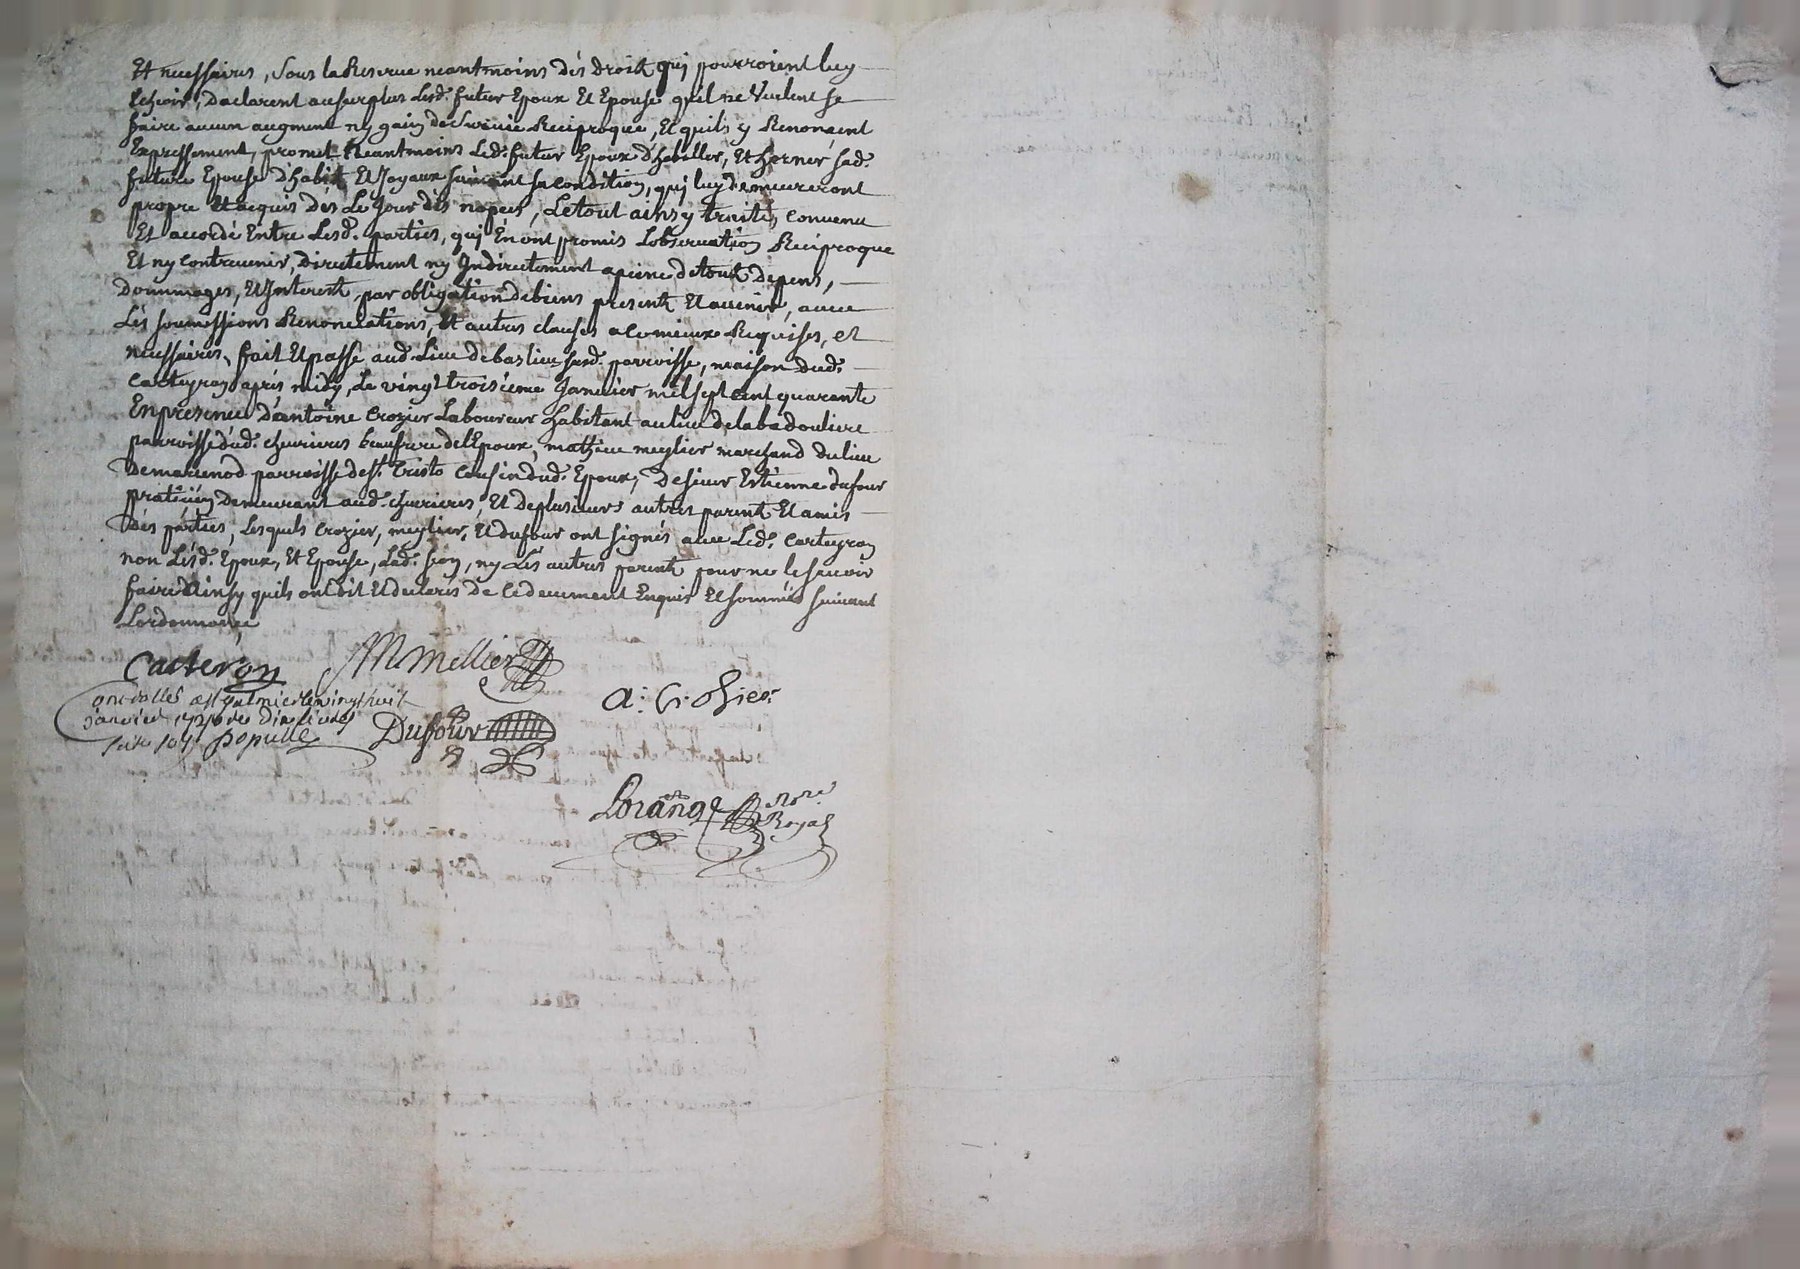 Et necessaires, sous la Reserve neantmoins des droits quj pourroient luy
Echoir, Daclarent ausurplus Lesd. futur Epoux Et Epouse quil ne Veulent se
faire aucun augment ny gaiy de Survie Reciproque, Et quils y Renoncent
Expressement, promet Neantmoins Led. futur Epoux d'habeller, Et horner sad.
future Epouse d'habit Et Joyaux suivant sa condition, quj luy demeureront
propre Et acquis des Le Jour des nopces, Le tout ainsy traité, convenu
Et accordé Entre Lesd. parties, quj En ont promis Lobservation Reciproque
Et ny contrevenir, Directement ny Indirectement apeine de tout Depens,
Dommages, Et Interest, par obligation de biens present Et avenir, avec
Les soumissions Renonciations, Et autres clauses a ce mieux Requises, et
necessaires, fait Et passé aud. Lieu de baslieu susd. parroisse, maison dud.
Carteyron apres midy, Le vingt troisieme Janvier mil sept cent quarante
En presence d'antoine Crozier Laboureur habitant au lieu de labadouliere
parroisse dud. chevrieres beaufrere de l'Epoux, mathieu meylier marchand du lieu
Demarenod parroisse de st. Cristo cousin dud. Epoux, De sieur Estienne dufour
praticien Demeurant aud. chevrieres, Et De plusieurs autres parent Et amis
Des parties, Lesquels Crozier, meylier, Et dufour ont signés avec Led. Carteyron
non Lesd. Epoux, Et Epouse, Lad. , ny Les autres parent pour ne le scavoir
faire Ainsy quils ont dit Et declarés De ce deuement Enquis Et sommés suivant
Lordonnance
Carteron M Mellier
A: Crosier
Controllé a st galmier le vingt huit
janvier 1740 Dix livres
Populle
Dufour
Lorange Nore
Royal